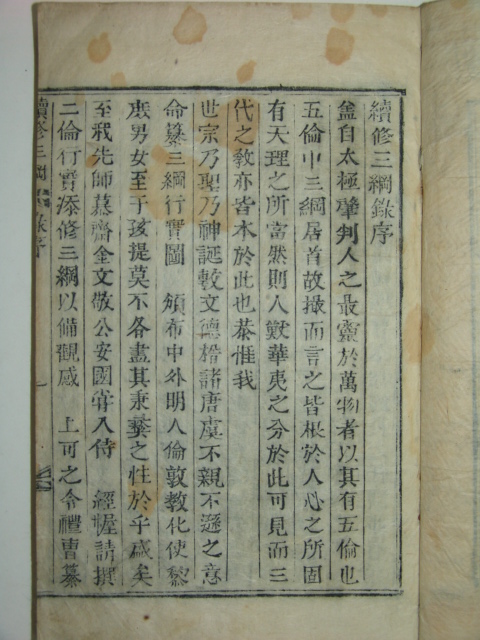 續修三綱錄序
盖自太極肇判人之最靈於萬物者以其有五倫也
五倫中三綱居首故撮而言之皆根於人心之所固
有天理之所當然則人獸華夷之分於此可見而三
代之敎亦皆本於此也恭惟我
世宗乃聖乃神誕敷文德楷諸唐虞不親不遜之意
命纂三綱行實圖 頒布中外明人倫敦敎化使黎
庶男女至于孩提莫不各盡其秉彛之性於乎盛矣
至我先師慕齋金文敬公安國甞入侍 經幄請撰
二倫行實添修三綱以備觀感 上可之令禮曹纂
續修三綱錄序